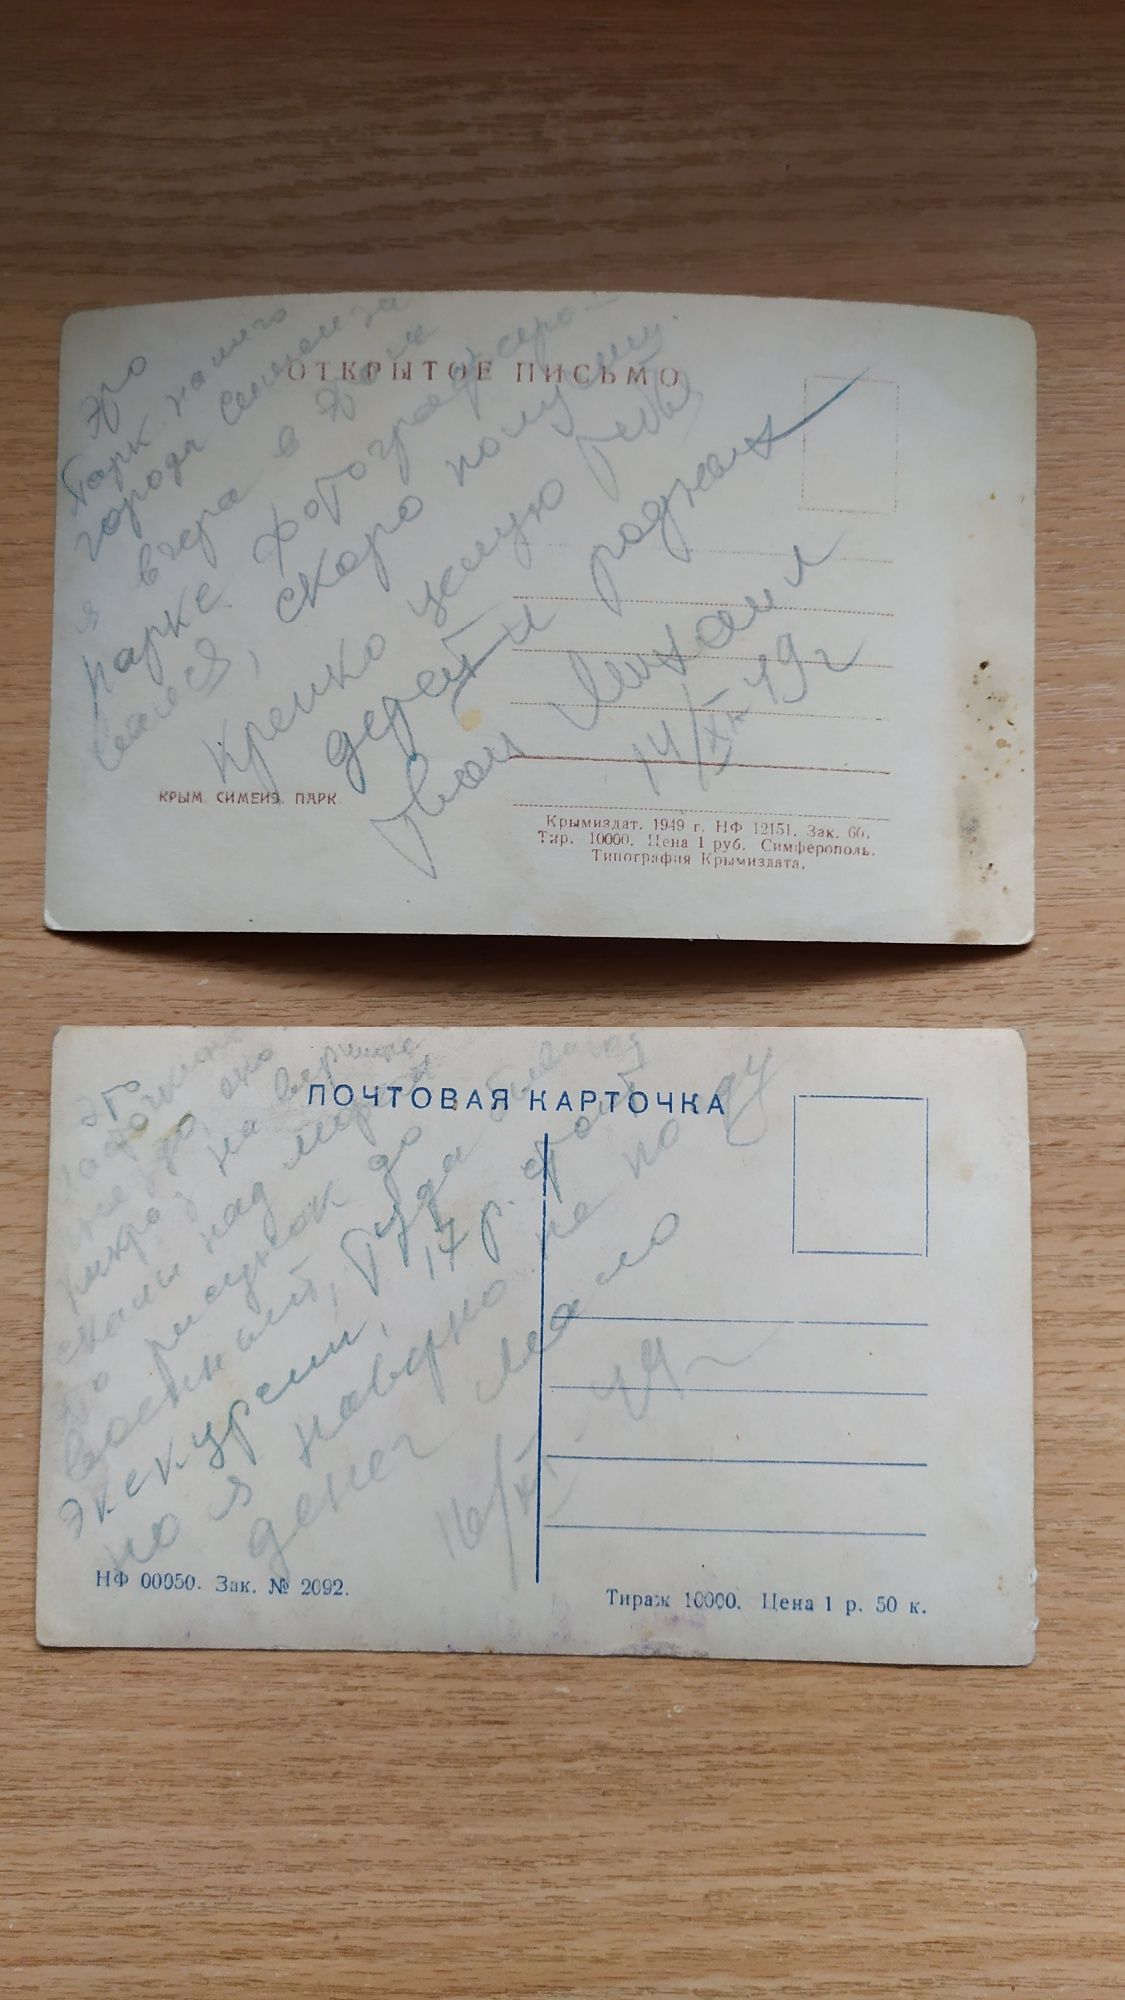 ОТКРЫТОЕ ПИСЬМО
Это
парк нашего
города Симеиза
я вчера в этом
парке фотографиро-
вался, скоро получу.
Крепко целую тебя
детей и родных
твой Михаил
14/XI-49 г
КРЫМ. СИМЕИЗ. ПАРК
Крымиздат. 1949 г. НФ 12151. Зак. 60.
Тир. 10000. Цена 1 руб. Симферополь.
Типография Крымиздата.
ПОЧТОВАЯ КАРТОЧКА
Это
гнездо, оно
на вершине
скалы над морем
то рисунок до
военный, туда бывают
экскурсии, 17 р. стоит
но я наверно не поеду
денег мало
16/XI-49
НФ 00050. Зак. № 2092.
Тираж 10000. Цена 1 р. 50 к.